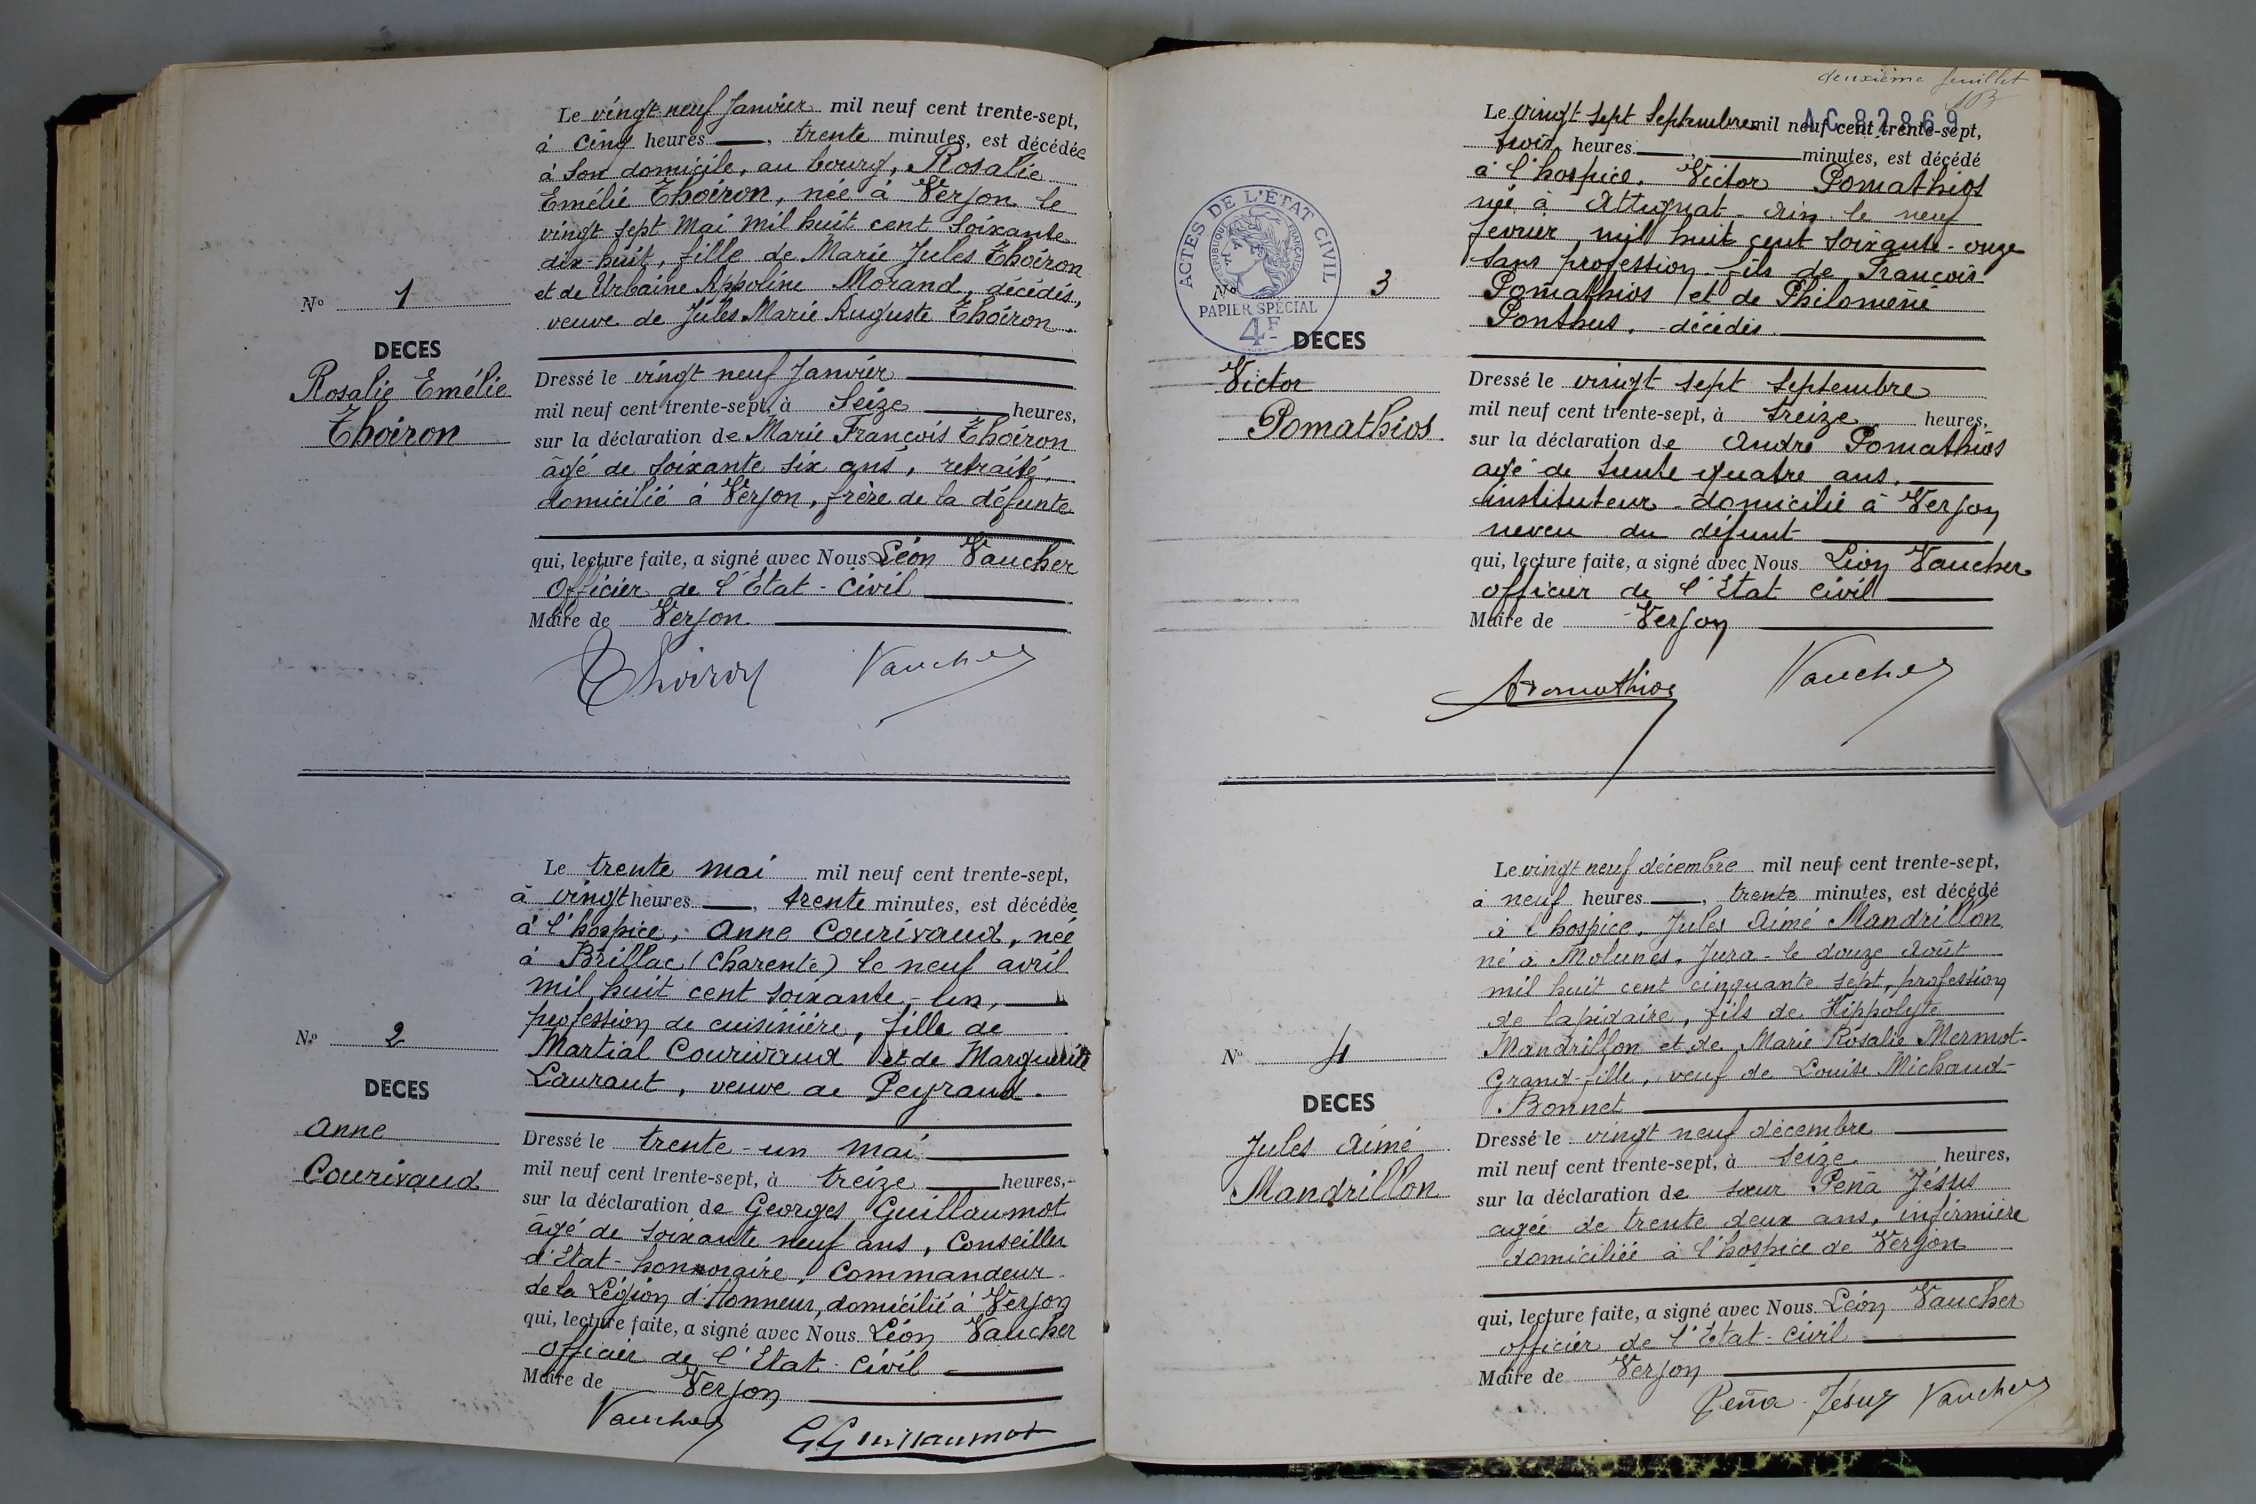 Le vingt neuf Janvier mil neuf cent trente-sept,
à cinq heures, trente minutes, est décédée
à son domicile, au bourg, Rosalie
Emélie Thoiron, née à Verjon le
vingt sept Mai mil huit cent soixante
dix-huit, fille de Marie Jules Thoiron
et de Urbaine Appoline Morand, décédés,
veuve de Jules Marie Auguste Thoiron.
N° 1
DECES
Rosalie Emélie
Thoiron
Dressé le vingt neuf Janvier
mil neuf cent trente-sept, à Seize heures,
sur la déclaration de Marie François Thoiron
âgé de soixante six ans, retraité,
domicilié à Verjon, frère de la défunte
qui, lecture faite, a signé avec Nous Léon Vaucher
Officier de l'Etat-civil
Maire de Verjon
Thoiron Vaucher
Le trente mai mil neuf cent trente-sept,
à vingt heures, trente minutes, est décédée
à l'hospice, Anne Courivaud, née
à Brillac (Charente) le neuf avril
mil huit cent soixante-un,
profession de cuisinière, fille de
Martial Courivaud et de Marguerite
Lauraut, veuve de Peyraud.
N° 2
DECES
Anne
Courivaud
Dressé le trente-un mai
mil neuf cent trente-sept, à treize heures,
sur la déclaration de Georges Guillaumot
âgé de soixante neuf ans, Conseiller
d'Etat-honoraire, Commandeur
de la Légion d'Honneur, domicilié à Verjon
qui, lecture faite, a signé avec Nous Léon Vaucher
Officier de l'Etat-civil
Maire de Verjon
Vaucher G Guillaumot
deuxième feuillet
AC 82869
Le vingt sept Septembre mil neuf cent trente-sept,
trois heures minutes, est décédé
à l'hospice, Victor Pomathios
né à Attignat-Ain le neuf
fevrier mil huit cent soixante-onze
sans profession-fils de François
Pomathios et de Philomène
Ponthus, décédés
ACTES DE L'ÉTAT CIVIL
RÉPUBLIQUE FRANÇAISE
PAPIER SPÉCIAL
4F
N° 3
DECES
Victor
Pomathios
Dressé le vingt sept septembre
mil neuf cent trente-sept, à treize heures,
sur la déclaration de André Pomathios
agé de trente quatre ans,
instituteur-domicilié à Verjon
neveu du défunt
qui, lecture faite, a signé avec Nous Léon Vaucher
officier de l'Etat civil
Maire de Verjon
APomathios Vaucher
Le vingt neuf décembre mil neuf cent trente-sept,
à neuf heures, trente minutes, est décédé
à l'hospice, Jules Aimé Mandrillon
né à Molunes, Jura-le douze Août
mil huit cent cinquante sept, profession
de lapidaire, fils de Hippolyte
Mandrillon et de Marie Rosalie Mermot-
Grand-fille, veuf de Louise Michaud-
Bonnet
N° 4
DECES
Jules Aimé
Mandrillon
Dressé le vingt neuf décembre
mil neuf cent trente-sept, à seize heures,
sur la déclaration de sœur Peña Jésus
agée de trente deux ans, infirmière
domiciliée à l'hospice de Verjon
qui, lecture faite, a signé avec Nous Léon Vaucher
officier de l'Etat-civil
Maire de Verjon
Peña Jésus Vaucher